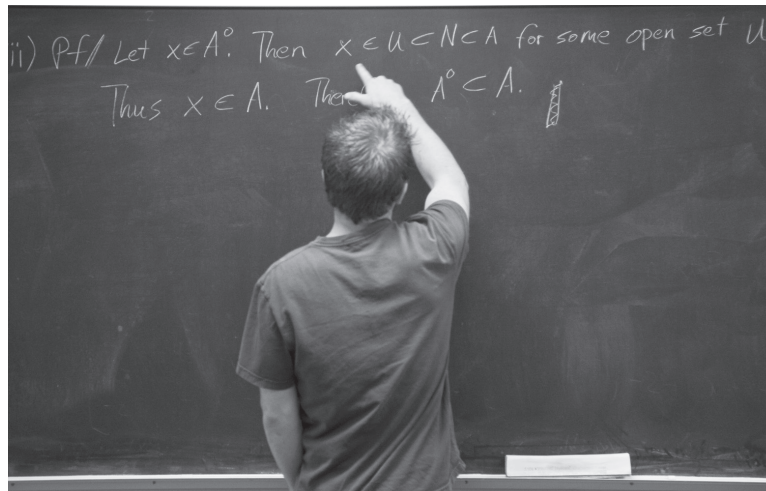 ii) Pf// Let x∈A°. Then x∈U⊂N⊂A for some open set U
Thus x∈A. A°⊂A.